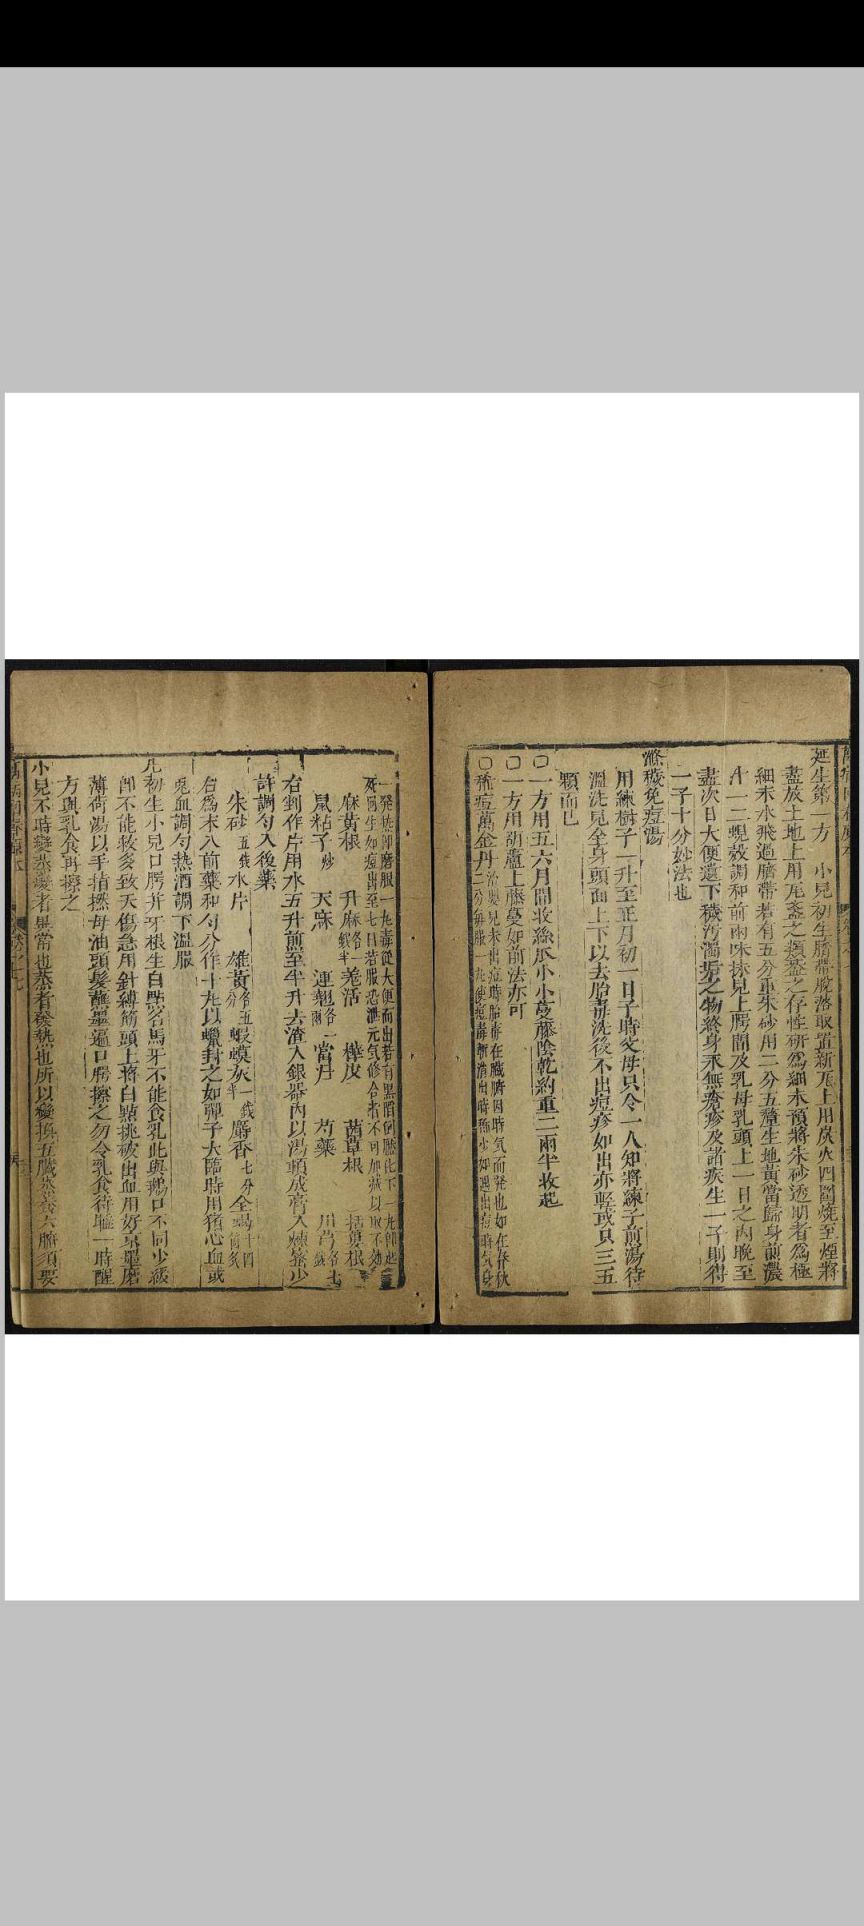 延生第一方　小兒初生臍帶脫落取置新瓦上用炭火四圍燒至煙將
盡放土地上用瓦盞之類盖之存性研為細末預將朱砂透明者為極
細末水飛過臍帶若有五分重朱砂用二分五釐生地黃當歸身煎濃
汁一二蜆殼調和前兩味抹兒上腭間及乳母乳頭上一日之內晚至
盡次日大便遺下穢污濁垢之物終身永無瘡疹及諸疾生一子則得
一子十分妙法也
滌穢免痘湯
用練樹子一升至正月初一日子時父母只令一人知將練子煎湯待
溫洗兒全身頭面上下以去胎毒洗後不出痘疹如出亦輕或只三五
顆而已
○一方用五六月間收絲瓜小小蔓藤陰乾約重二兩半收起
○一方用葫蘆上藤蔓如前法亦可
○稀痘萬金丹治嬰兒未出痘時胎毒在臟腑因時氣而発也如在春秋
二分每服一丸使痘毒漸消出時稀少如遇出痘時気身
一発熱卽磨服一丸毒從大便而出若有黑陷倒靨化下一丸卽起
死囬生如痘出至七日若服恐泄元気修合者不可加減以取不効
麻黃根　升麻各一錢半　羌活　樺皮　茜草根　栝蔞根
鼠粘子炒　天麻　連翹各一兩　當歸　芍藥　川芎各七錢
右剉作片用水五升煎至半升去渣入銀器內以湯頓成膏入煉蜜少
許調勻入後藥
朱砂五錢　水片　雄黃各五分　蝦蟆灰一錢半　麝香七分　全蝎十四箇炙
右為末八前藥和勻分作十丸以蠟封之如彈子大臨時用猪心血或
兎血調勻熱酒調下溫服
凡初生小兒口腭并牙根生白點名馬牙不能食乳此與鵝口不同少緩
卽不能救多致夭傷急用針縛筯頭上將白點挑破出血用好京墨磨
薄荷湯以手指撚母油頭髮蘸墨遍口腭擦之勿令乳食待睡一時醒
方與乳食再擦之
小兒不時變蒸變者異常也蒸者發熱也所以變換五臟蒸養六腑須要